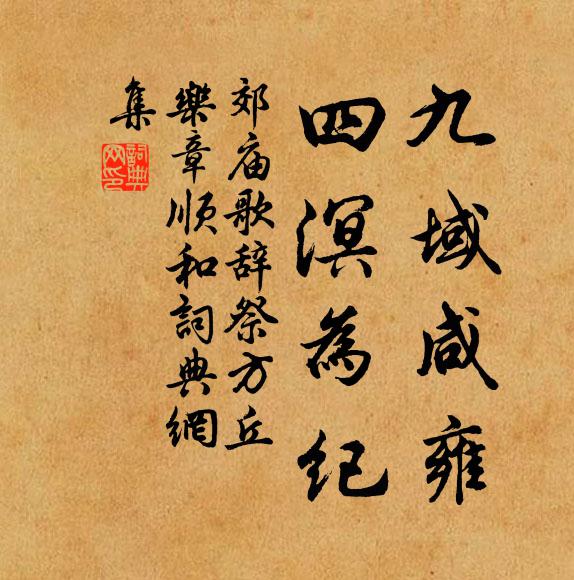 九域咸雍
四溟為紀
郊庙歌辞祭方丘
樂章顺和詞典網
集
詞典
网印